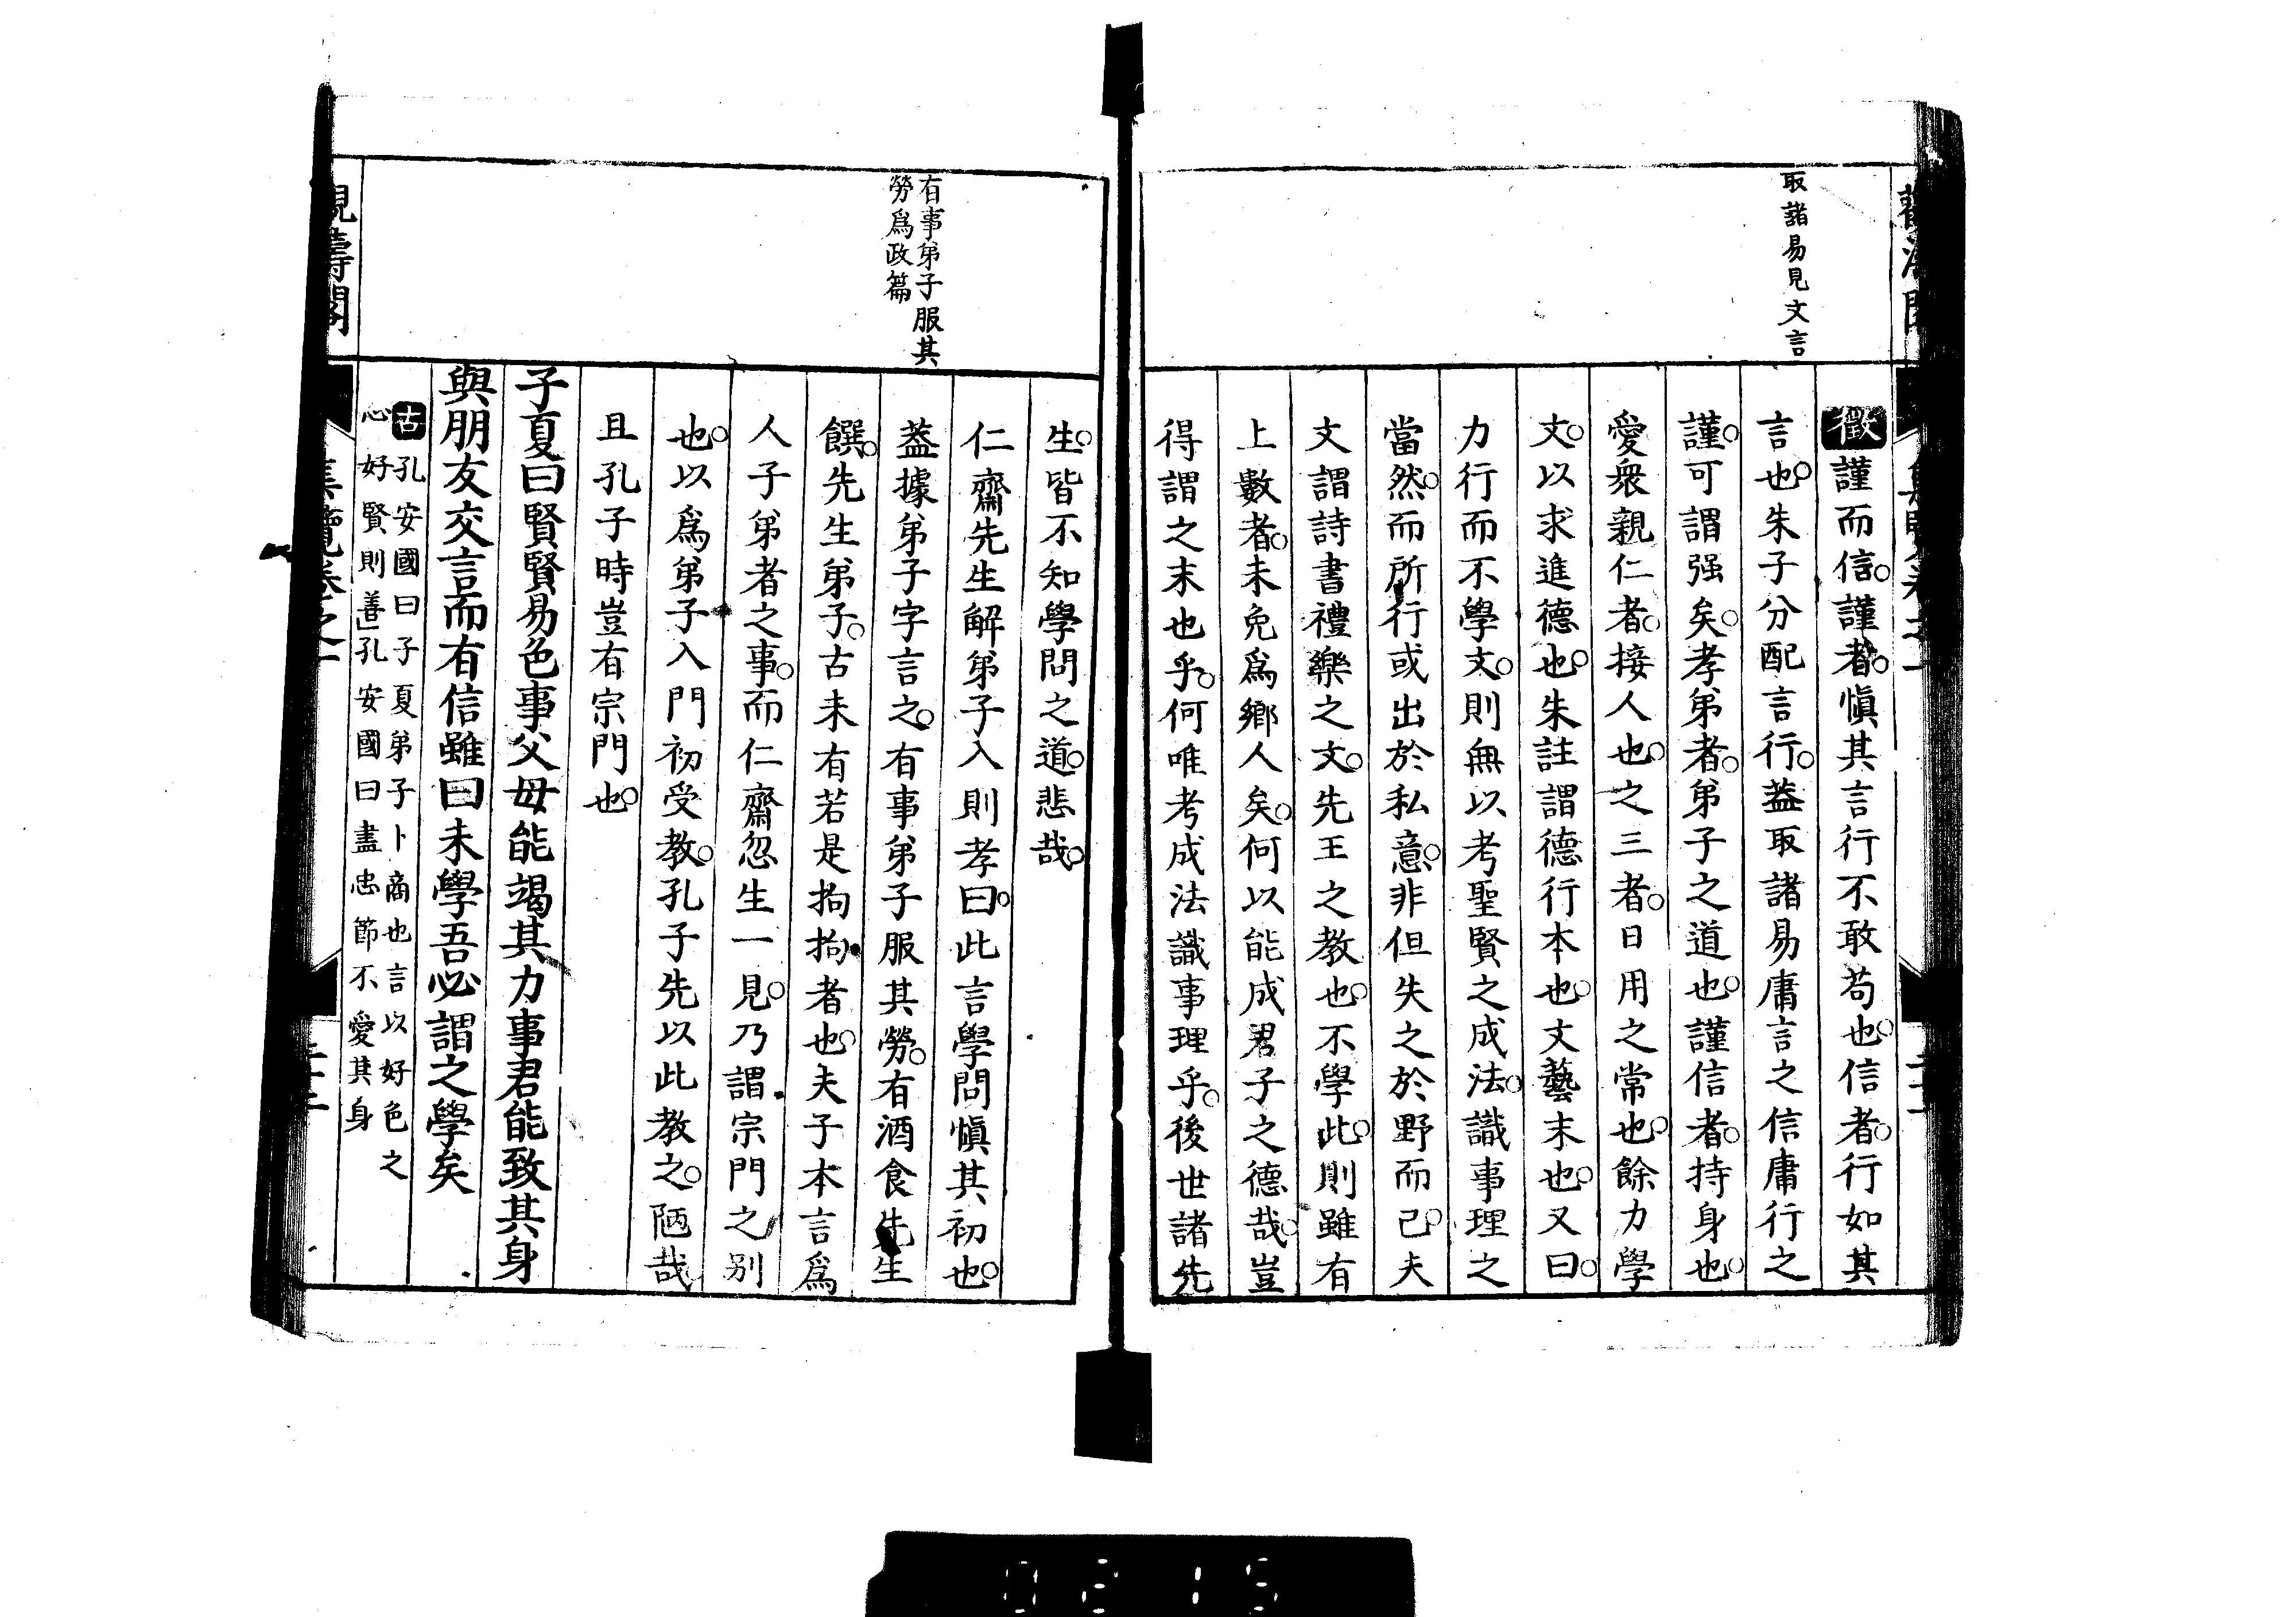 取諸易見文言
徵謹而信○謹者○愼其言行不敢苟也○信者○行如其
言也○朱子分配言行○葢取諸易庸言之信庸行之
謹○可謂强矣○孝弟者○弟子之道也○謹信者○持身也○
愛衆親仁者○接人也○之三者○日用之常也○餘力學
文○以求進德也○朱註謂德行本也○文藝末也○又曰○
力行而不學文○則無以考聖賢之成法○識事理之
當然○而所行或出於私意○非但失之於野而已○夫
文謂詩書禮樂之文○先王之教也○不學此○則雖有
上數者○未免爲鄉人矣○何以能成君子之德哉○豈
得謂之末也乎○何唯考成法識事理乎○後世諸先
有事弟子服其
勞爲政篇
生○皆不知學問之道○悲哉○
仁齋先生解弟子入則孝曰○此言學問愼其初也○
葢據弟子字言之○有事弟子服其勞○有酒食先生
饌○先生弟子○古未有若是拘拘者也○夫子本言爲
人子弟者之事○而仁齋忽生一見○乃謂宗門之別
也○以爲弟子入門初受教○孔子先以此教之○陋哉
且孔子時豈有宗門也○
子夏曰賢賢易色事父母能竭其力事君能致其身
與朋友交言而有信雖曰未學吾必謂之學矣
古孔安國曰子夏弟子卜商也言以好色之
心好賢則善孔安國曰盡忠節不愛其身
覽卷之一